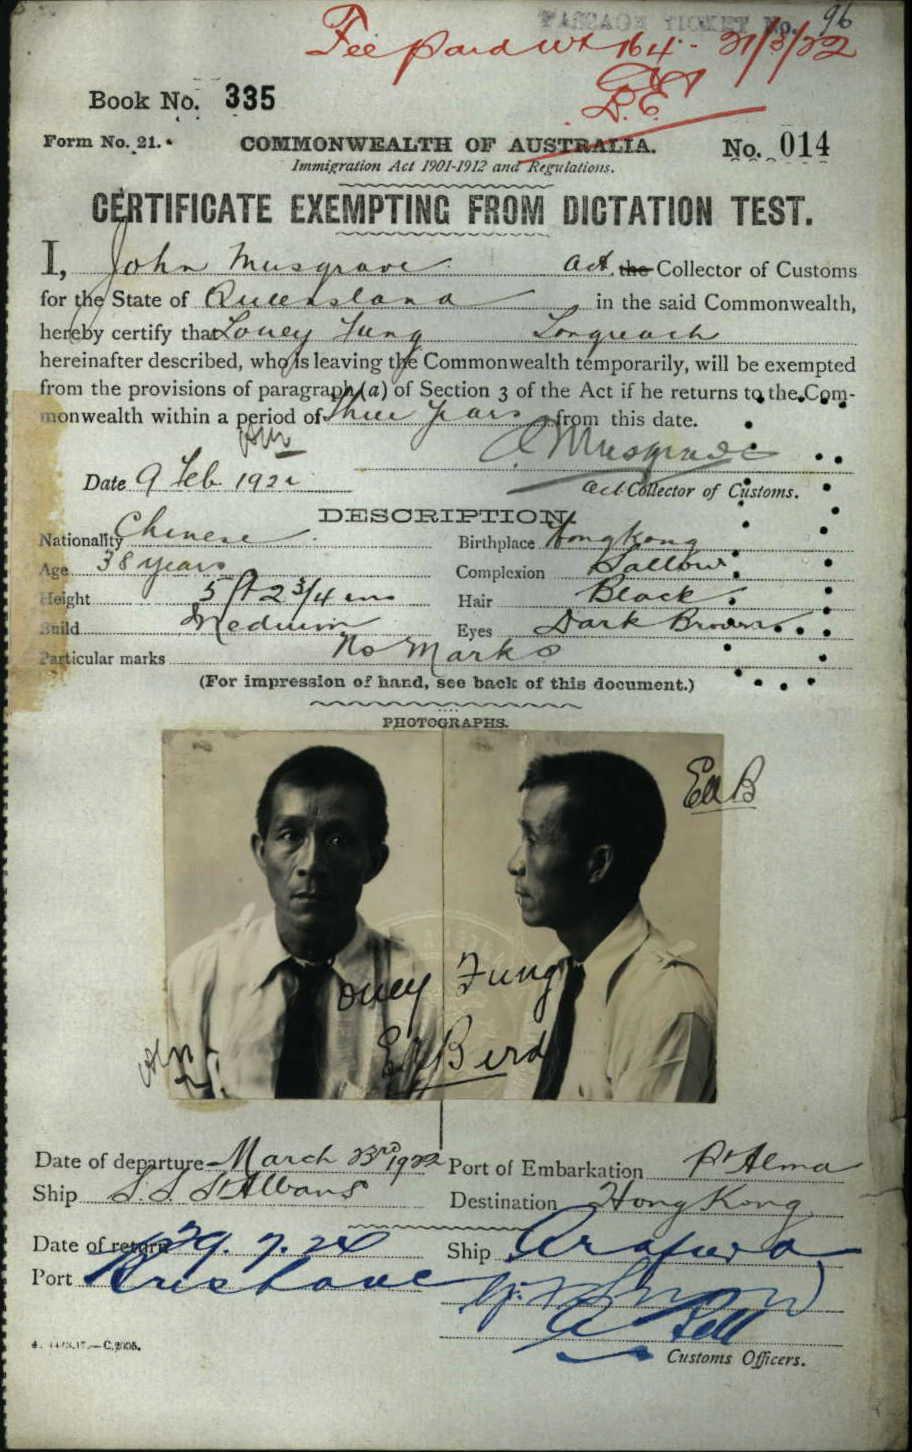 PASSAGE TICKET No. 96
Fee paid 164. 21/3/22
Book No. 335
Form No. 21.
COMMONWEALTH OF AUSTRALIA.
No. 014
Immigration Act 1901-1912 and Regulations.
CERTIFICATE EXEMPTING FROM DICTATION TEST.
I, John Musgrave Act. the Collector of Customs
for the State of Queensland in the said Commonwealth,
hereby certify that Louey Fung Longreach
hereinafter described, who is leaving the Commonwealth temporarily, will be exempted
from the provisions of paragraph (a) of Section 3 of the Act if he returns to the Com-
monwealth within a period of three years from this date.
Musgrave
Date 9 Feb 1922
act Collector of Customs.
DESCRIPTION.
Nationality Chinese Birthplace Hong Kong
Age 38 years Complexion Sallow
Height 5 ft 2 3/4 ins Hair Black
Build Medium Eyes Dark Brown
Particular marks No Marks
(For impression of hand, see back of this document.)
PHOTOGRAPHS.
EAB
Louey Fung
EA Bird
Date of departure March 23rd 1922 Port of Embarkation Pt Alma
Ship S.S. St Albans Destination Hong Kong
Date of return 29.7.24 Ship Arafura
Port Brisbane
Bell
Customs Officers.